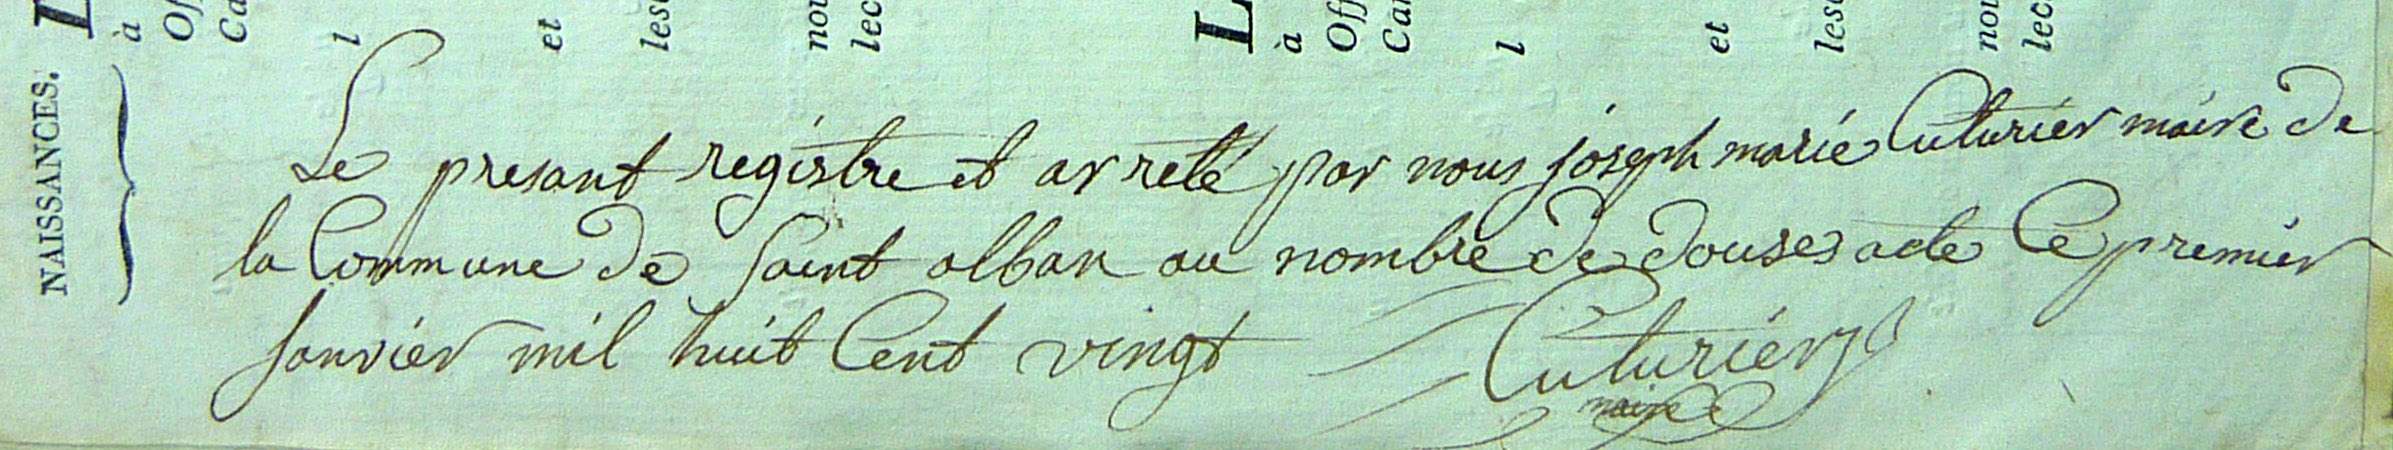 NAISSANCES.
L
à
Off
Ca
l
et
les
nou
lec
L
à
Off
Car
l
et
lesc
nou
lec
Le presant registre et arreté par nous joseph marie Cuturier maire de
la Commune de Saint alban au nombre de douses acte Ce premier
Janvier mil huit Cent vingt Cuturier
maire